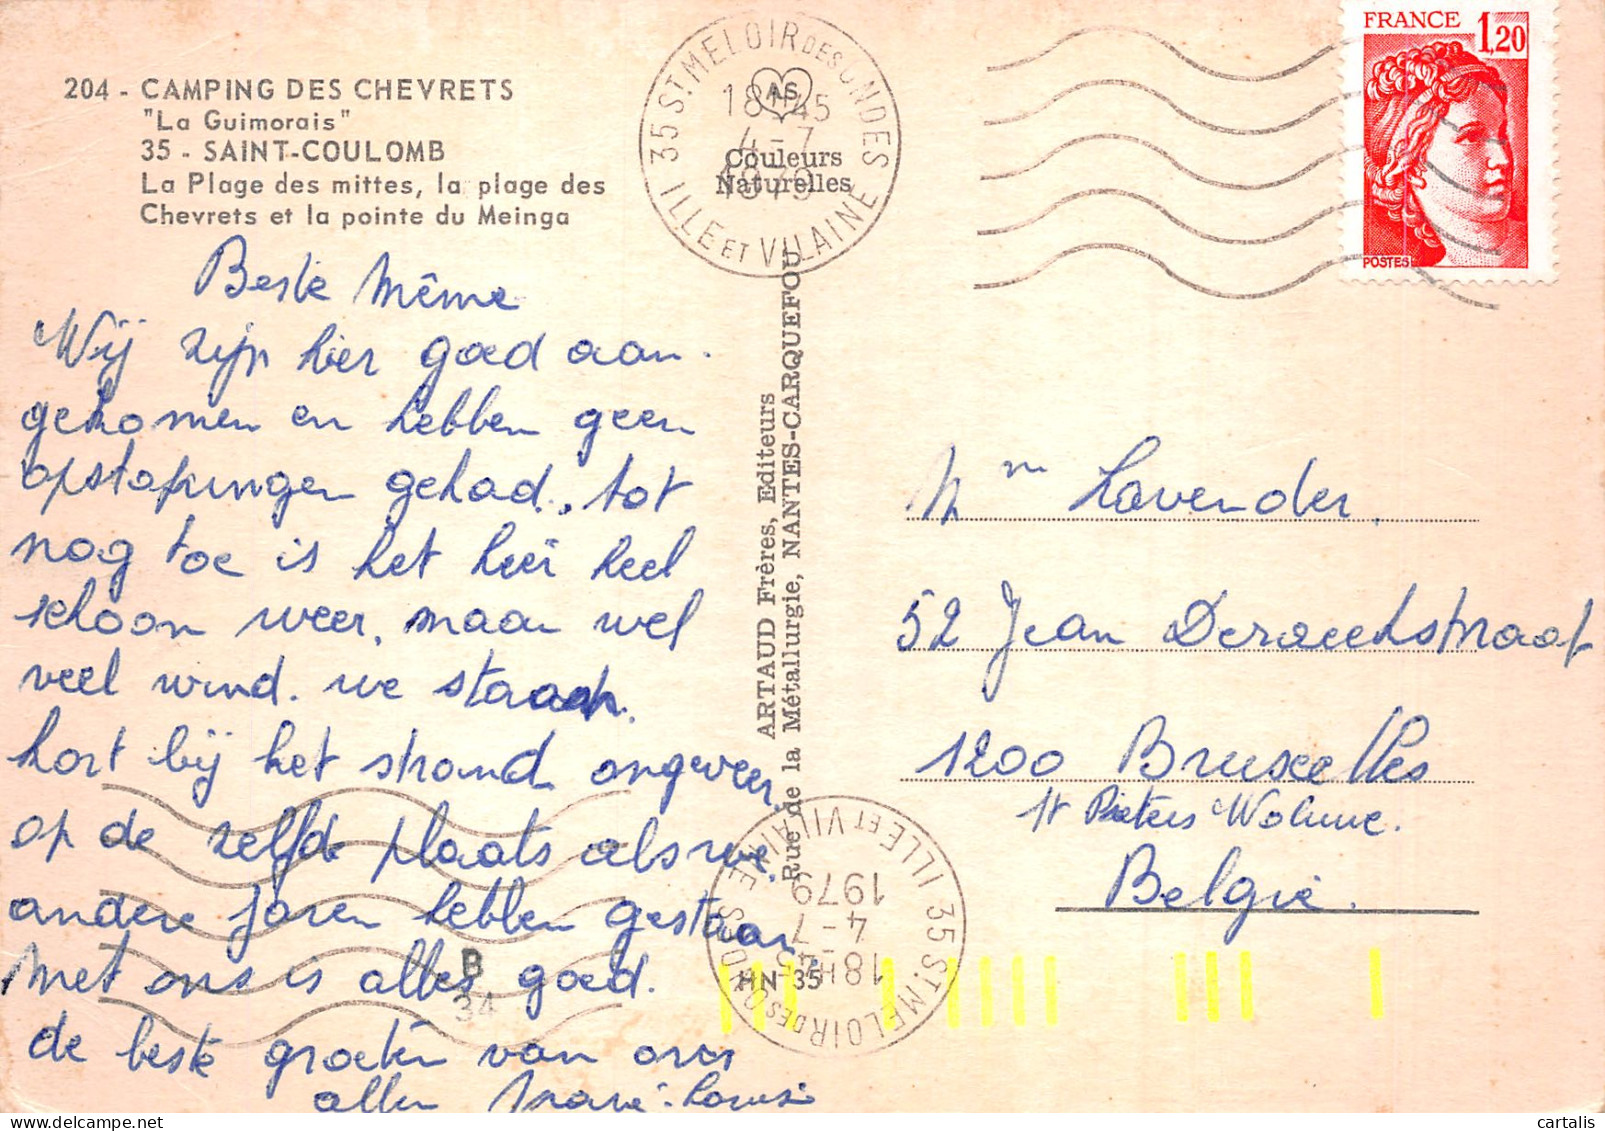 204 - CAMPING DES CHEVRETS
"La Guimorais"
35 - SAINT-COULOMB
La Plage des mittes, la plage des
Chevrets et la pointe du Meinga
35 ST. MELOIR DES ONDES
18H45
4-7
1979
ILLE ET VILAINE
AS
Couleurs
Naturelles
FRANCE 1,20
POSTES
Beste Même
Wij zijn hier goed aan.
gekomen en hebben geen
opstopingen gehad., tot
nog toe is het hier heel
schoon weer, maar wel
veel wind. we staan.
kort bij het strand ongeveer
op de zelfde plaats als we
andere jaren hebben gestaan,
Met ons is alles goed.
de beste groeten van ons
allen Marie-Louise
ARTAUD Frères, Editeurs
Rue de la Métallurgie, NANTES-CARQUEFOU
Mm Lavender.
52 Jean Deraeckstraat
1200 Bruxelles
St Pieters Woluwe.
Belgie.
B
34
HN 35
35 ST. MELOIR DES ONDES
18H45
4-7
1979
ILLE ET VILAINE
cartalis